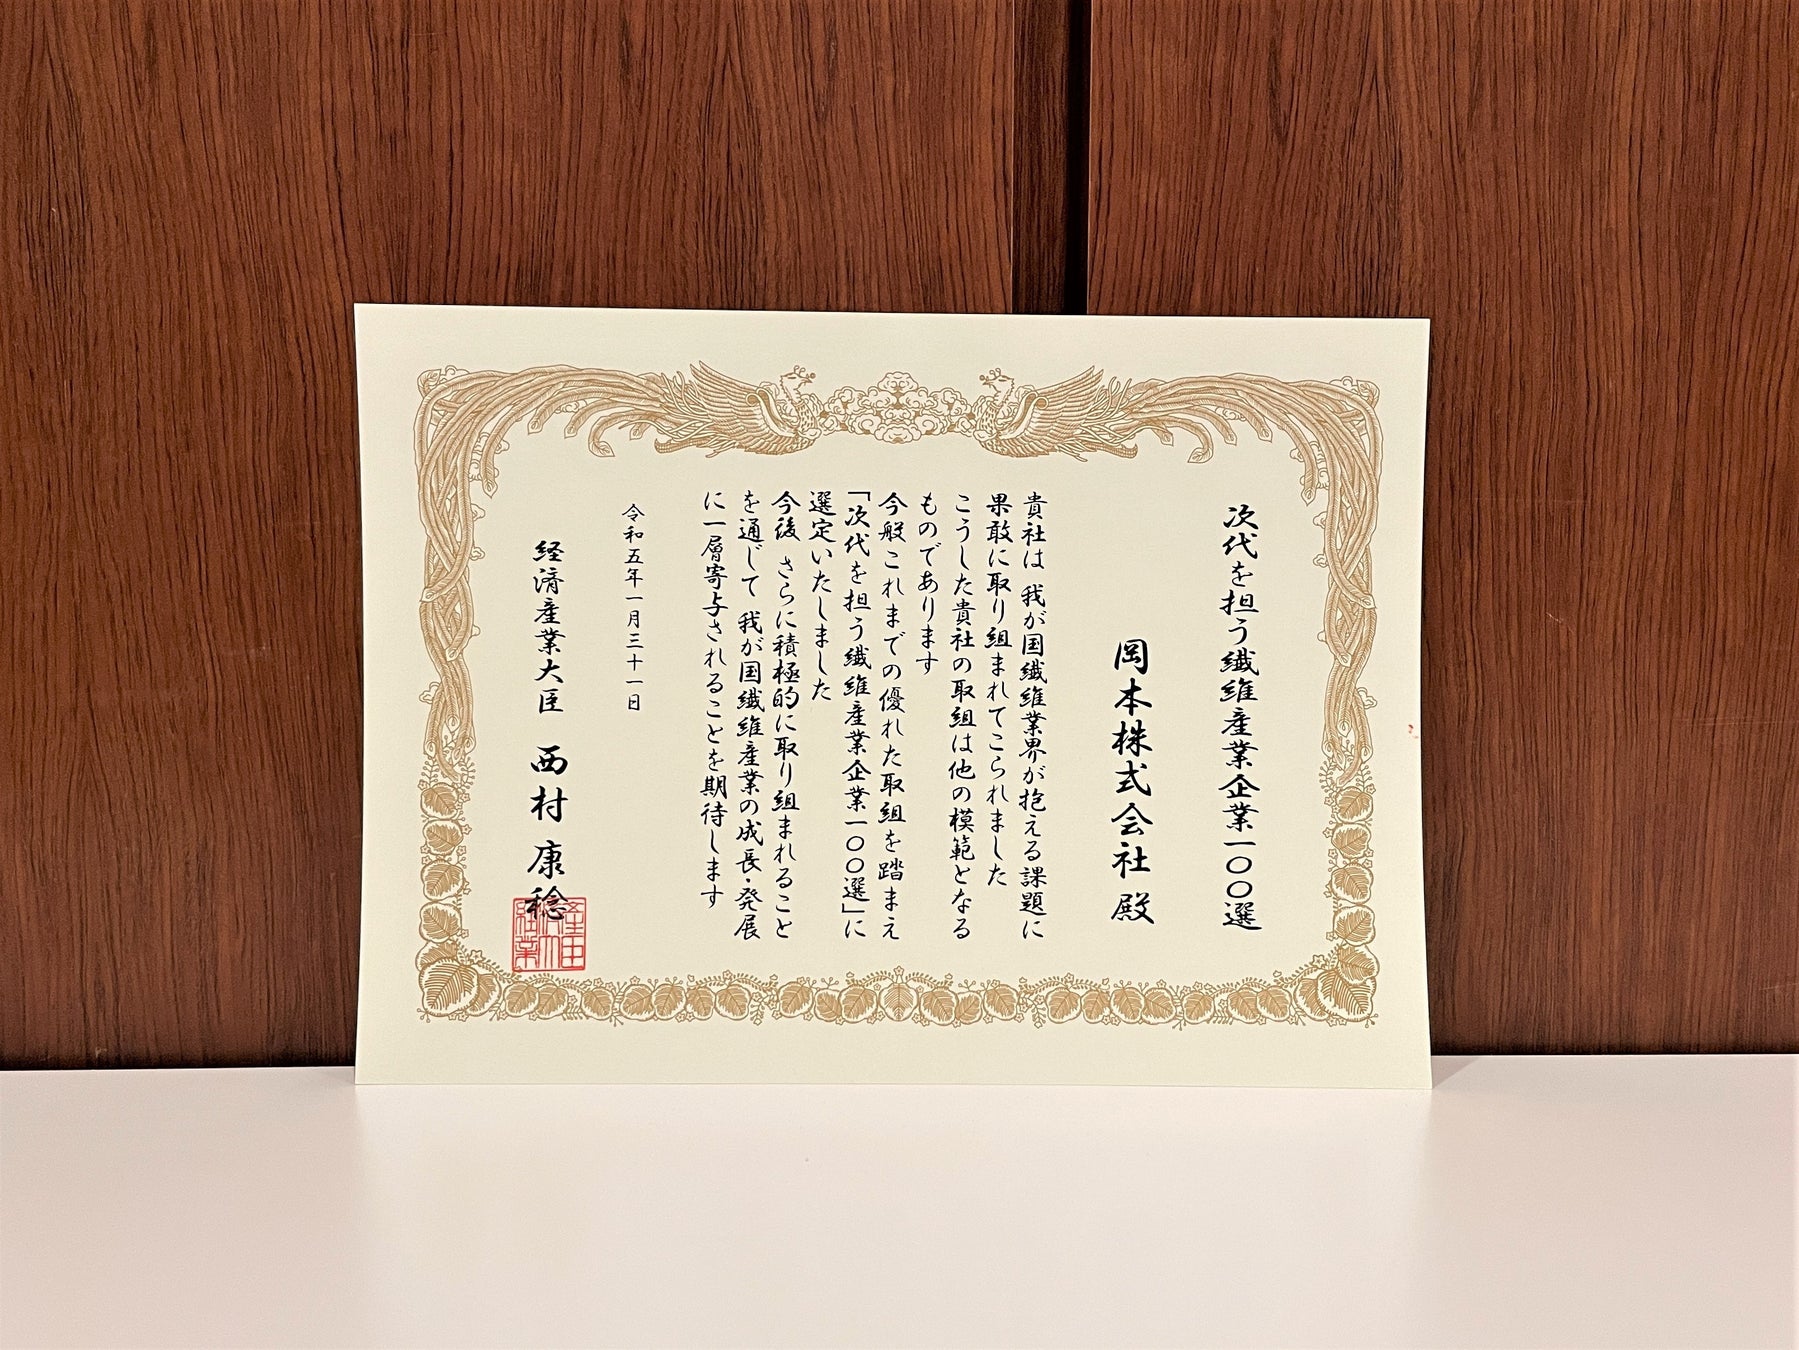 次代を担う繊維産業企業一〇〇選
岡本株式会社 殿
貴社は 我が国繊維業界が抱える課題に
果敢に取り組まれてこられました
こうした貴社の取組は他の模範となる
ものであります
今般これまでの優れた取組を踏まえ
「次代を担う繊維産業企業一〇〇選」に
選定いたしました
今後 さらに積極的に取り組まれること
を通じて 我が国繊維産業の成長・発展
に一層寄与されることを期待します
令和五年一月三十一日
経済産業大臣 西村 康稔